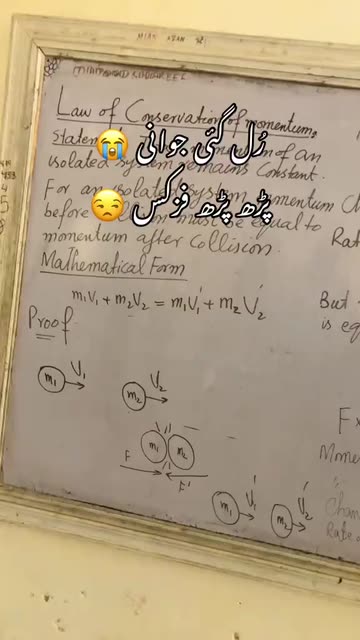 MIAN AZAN
Law of Conservation of momentum.
رُل گئی جوانی 😭
of an
isolated system remains Constant.
For an isolated system momentum
پڑھ پڑھ فزکس 😒
before must be equal to
momentum after Collision.
Mathematical Form
m₁V₁ + m₂V₂ = m₁V₁' + m₂V₂'
Proof
m₁ V₁
m₂ V₂
m₁ m₂
F F'
m₁ V₁'
m₂ V₂'
Rat
But
is eq
F x
Momen
Chan
Rate o